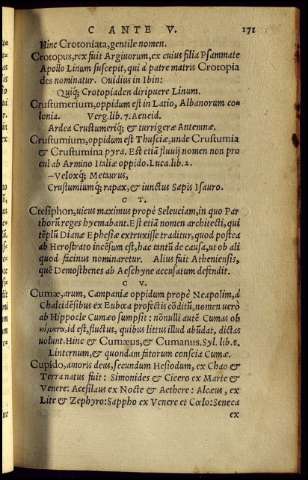 CANTE V. 171
Hinc Crotoniata, gentile nomen.
Crotopus, rex fuit Argiuorum, ex cuius filia Psammate
Apollo Linum suscepit, qui à patre matris Crotopia
des nominatur. Ouidius in Ibin:
Quiq; Crotopiaden diripuere Linum.
Crustumerium, oppidum est in Latio, Albanorum co
lonia. Verg. lib. 7. Aeneid.
Ardea Crustumeriq; & turrigeræ Antennæ.
Crustumium, oppidum est Thusciæ, unde Crustumia
& Crustumina pyra. Est etiã fluuij nomen non pro
cul ab Armino Italiæ oppido. Luca. lib. 2.
—Veloxq; Metaurus,
Crustumiumq; rapax, & iunctus Sapis Isauro.
C T.
Ctesiphon, uicus maximus propè Seleuciam, in quo Par
thorũ reges hyemabant. Est etiã nomen architecti, qui
tẽplũ Dianæ Ephesiæ extruxisse traditur, quod postea
ab Herostrato incẽsum est, hac tantũ de causa, ut ob ali
quod facinus nominaretur. Alius fuit Atheniensis,
quẽ Demosthenes ab Aeschyne accusatum defendit.
C V.
Cumæ, arum, Campaniæ oppidum propè Neapolim, à
Chalcidẽsibus ex Euboea profectis cõditũ, nomen uerò
ab Hippocle Cumæo sumpsit: nõnulli autẽ Cumas ob
id est, fluctus, quibus littus illud abũdat, dictas
uolunt. Hinc & Cumæus, & Cumanus. Syl. lib. 8.
Linternum, & quondam fatorum conscia Cumæ.
Cupido, amoris deus, secundum Hesiodum, ex Chao &
Terra natus fuit: Simonides & Cicero ex Marte &
Venere: Acesilaus ex Nocte & Aethere: Alcæus, ex
Lite & Zephyro: Sappho ex Venere et Cœlo: Seneca
ex